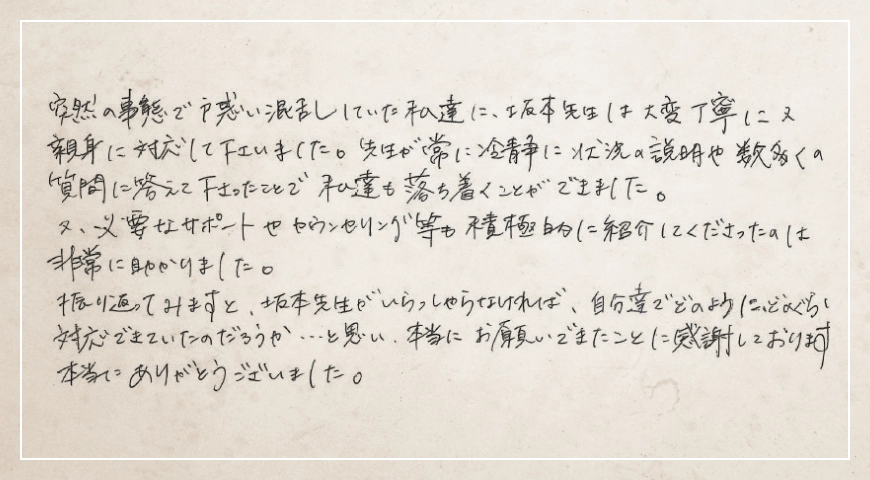 突然の事態で戸惑い混乱していた私達に、坂本先生は大変丁寧に又
親身に対応して下さいました。先生が常に冷静に状況の説明や数多くの
質問に答えて下さったことで私達も落ち着くことができました。
又、必要なサポートやカウンセリング等も積極的に紹介してくださったのは
非常に助かりました。
振り返ってみますと、坂本先生がいらっしゃらなければ、自分達でどのように、どのくらい
対応できていたのだろうか…と思い、本当にお願いできたことに感謝しております
本当にありがとうございました。